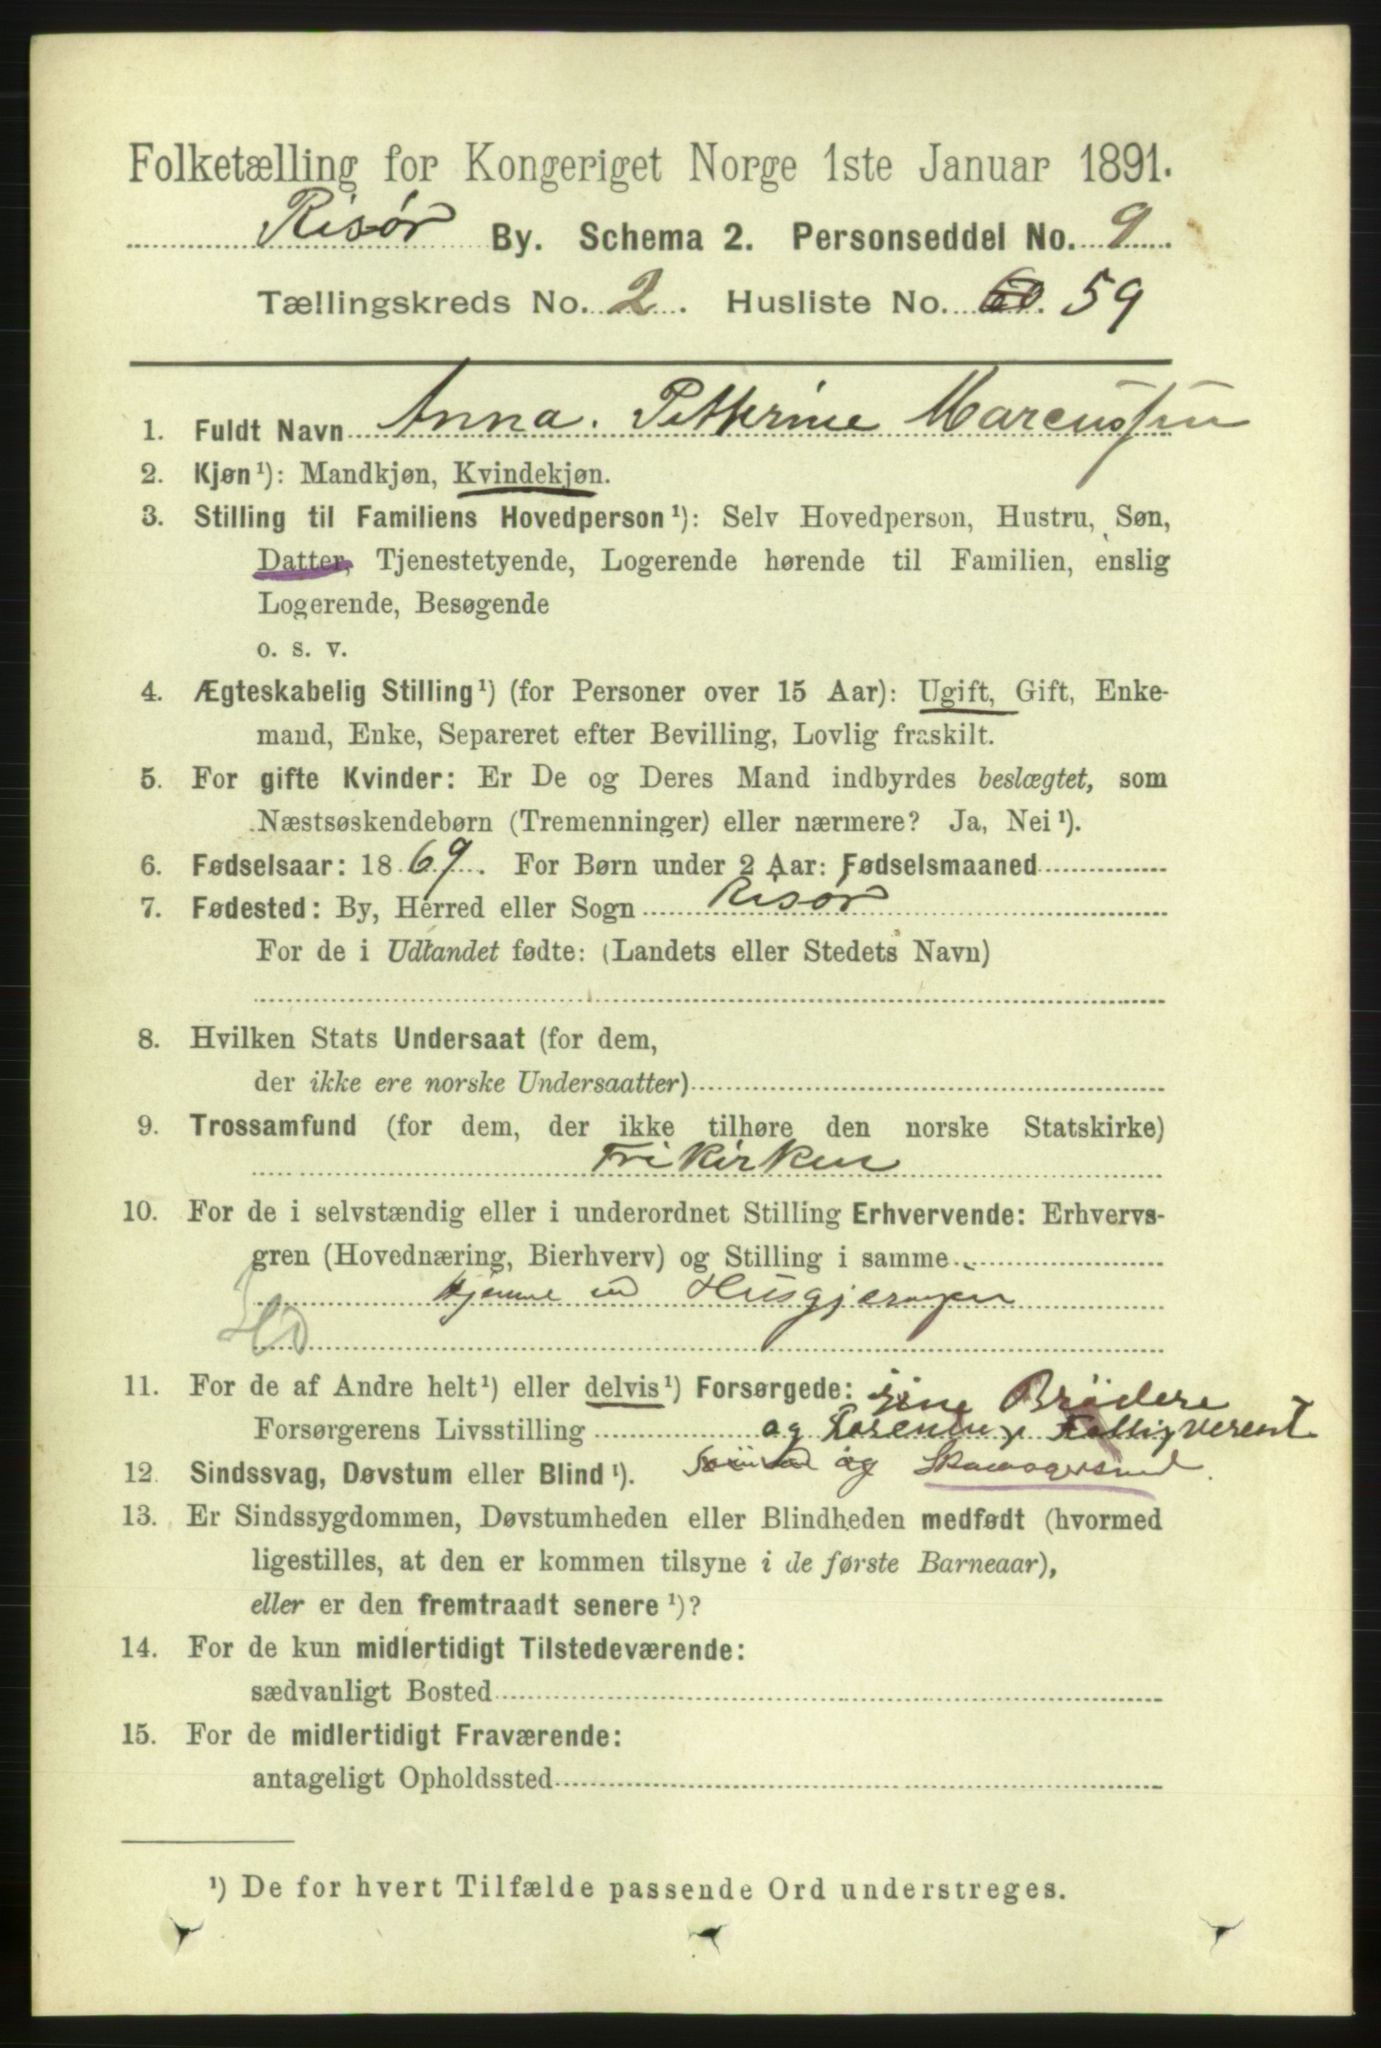 Folketælling for Kongeriget Norge 1ste Januar 1891.
Risør By. Schema 2. Personseddel No. 9
Tællingskreds No. 2. Husliste No. 60. 59
1. Fuldt Navn Anna. Petherine Marcussen
2. Kjøn¹): Mandkjøn, Kvindekjøn.
3. Stilling til Familiens Hovedperson¹): Selv Hovedperson, Hustru, Søn,
Datter, Tjenestetyende, Logerende hørende til Familien, enslig
Logerende, Besøgende
o. s. v.
4. Ægteskabelig Stilling¹) (for Personer over 15 Aar): Ugift, Gift, Enke-
mand, Enke, Separeret efter Bevilling, Lovlig fraskilt.
5. For gifte Kvinder: Er De og Deres Mand indbyrdes beslægtet, som
Næstsøskendebørn (Tremenninger) eller nærmere? Ja, Nei¹).
6. Fødselsaar: 1869. For Børn under 2 Aar: Fødselsmaaned
7. Fødested: By, Herred eller Sogn Risør
For de i Udlandet fødte: (Landets eller Stedets Navn)
8. Hvilken Stats Undersaat (for dem,
der ikke ere norske Undersaatter)
9. Trossamfund (for dem, der ikke tilhøre den norske Statskirke)
Frikirken
10. For de i selvstændig eller i underordnet Stilling Erhvervende: Erhvervs-
gren (Hovednæring, Bierhverv) og Stilling i samme
Hjemme Husgjerningen
11. For de af Andre helt¹) eller delvis¹) Forsørgede: sine Brödere
Forsørgerens Livsstilling og
12 Sindssvag, Døvstum eller Blind¹). og
13. Er Sindssygdommen, Døvstumheden eller Blindheden medfødt (hvormed
ligestilles, at den er kommen tilsyne i de første Barneaar),
eller er den fremtraadt senere¹)?
14. For de kun midlertidigt Tilstedeværende:
sædvanligt Bosted
15. For de midlertidigt Fraværende:
antageligt Opholdssted
¹) De for hvert Tilfælde passende Ord understreges.